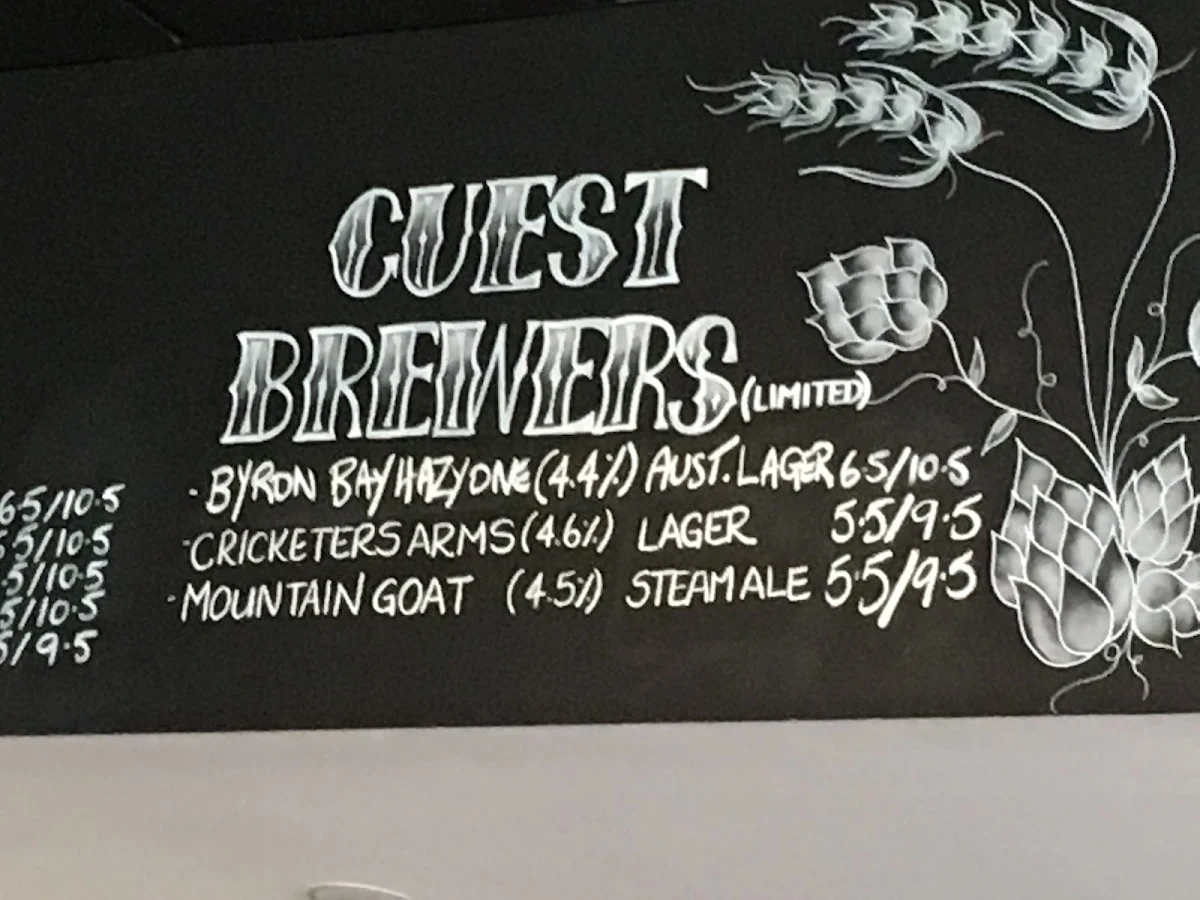 GUEST
BREWERS (LIMITED)
· BYRON BAY HAZY ONE (4.4%) AUST. LAGER 6·5/10·5
· CRICKETERS ARMS (4.6%) LAGER 5·5/9·5
· MOUNTAIN GOAT (4.5%) STEAM ALE 5·5/9·5
6·5/10·5
5/10·5
5/10·5
5/10·5
5/9·5